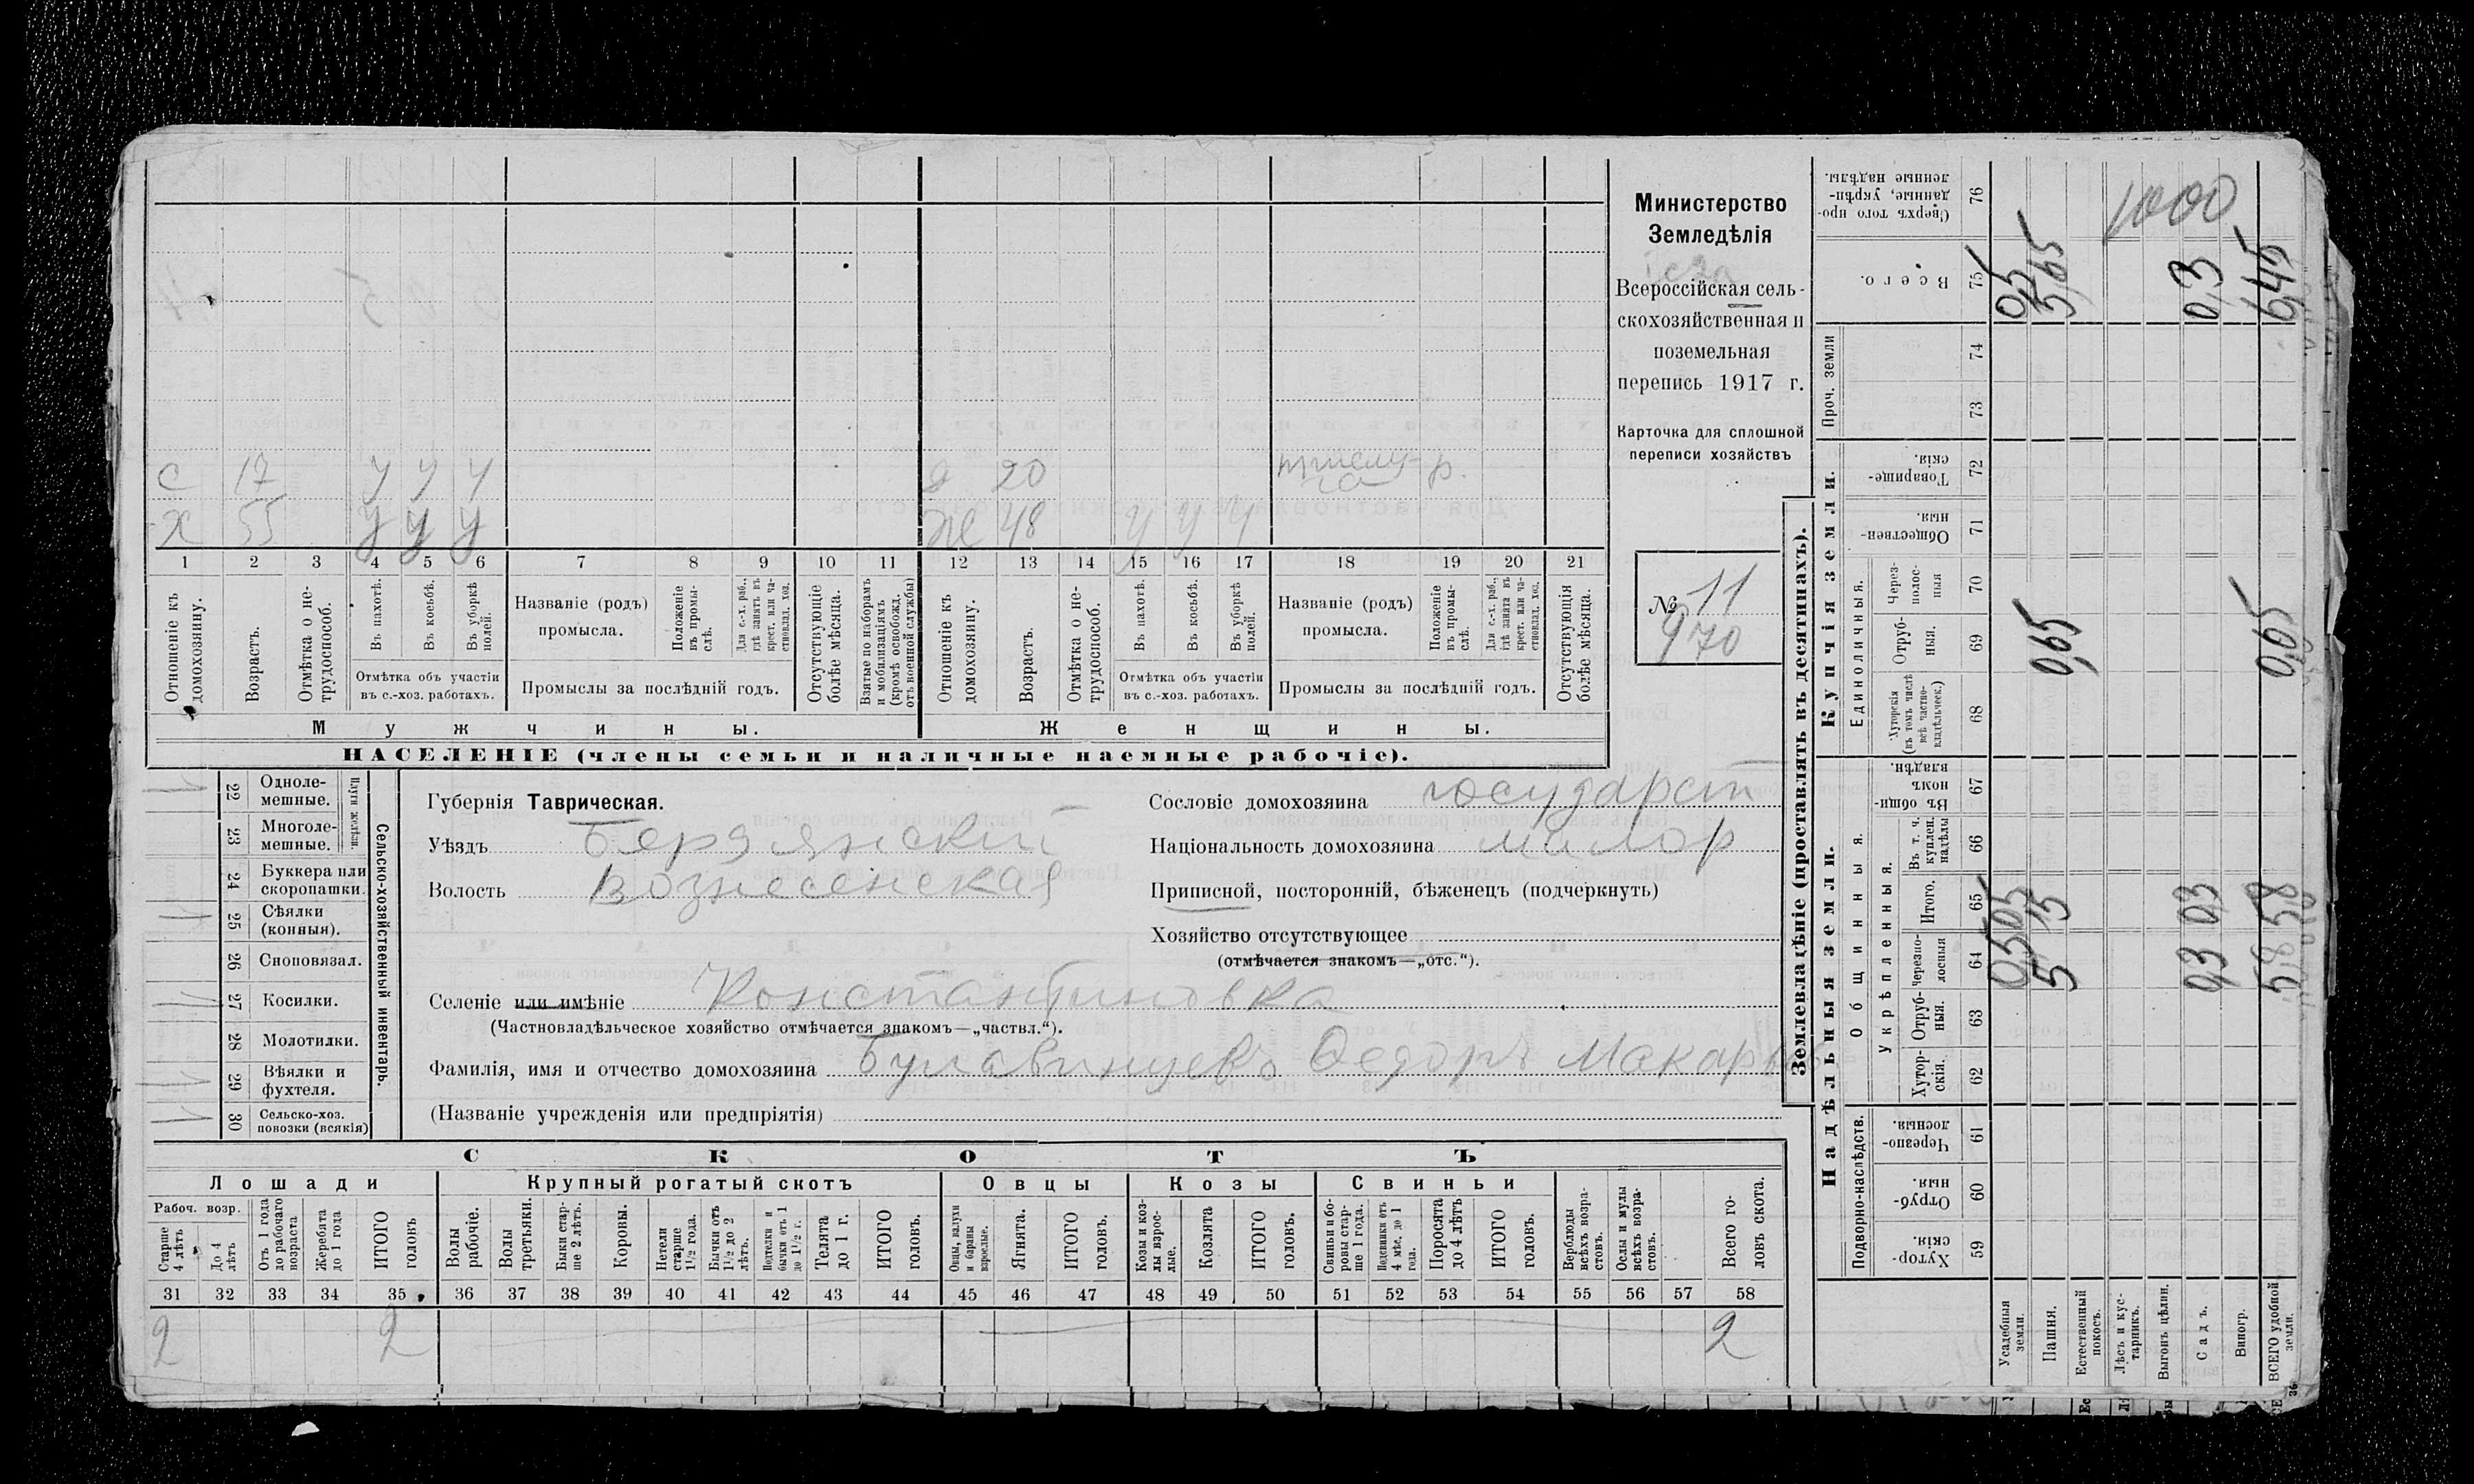 Министерство
Земледѣлія
Всероссійская сель-
скохозяйственная и
поземельная
перепись 1917 г.
Карточка для сплошной
переписи хозяйствъ
№ 11
970
с 17 у у у 20 р.
х 55 у у у ж 48 у у у
1 2 3 4 5 6 7 8 9 10 11 12 13 14 15 16 17 18 19 20 21
Отношеніе къ домохозяину.
Возрастъ.
Отмѣтка о не-трудоспособ.
Въ пахотѣ.
Въ косьбѣ.
Въ уборкѣ полей.
Отмѣтка объ участіи
въ с.-хоз. работахъ.
Названіе (родъ)
промысла.
Положеніе въ промы-слѣ.
Для с.-х. раб., гдѣ занятъ въ крест. или ча-стновлад. хоз.
Промыслы за послѣдній годъ.
Отсутствующіе болѣе мѣсяца.
Взятые по наборамъ и мобилизаціямъ (кромѣ освобожд. отъ военной службы)
Отношеніе къ домохозяину.
Возрастъ.
Отмѣтка о не-трудоспособ.
Въ пахотѣ.
Въ косьбѣ.
Въ уборкѣ полей.
Отмѣтка объ участіи
въ с.-хоз. работахъ.
Названіе (родъ)
промысла.
Положеніе въ промы-слѣ.
Для с.-х. раб., гдѣ занята въ крест. или ча-стновлад. хоз.
Промыслы за послѣдній годъ.
Отсутствующія болѣе мѣсяца.
Мужчины.
Женщины.
НАСЕЛЕНІЕ (члены семьи и наличные наемные рабочіе).
22 Одноле-мешные.
23 Многоле-мешные.
Плуги желѣзн.
24 Буккера или скоропашки.
25 Сѣялки (конныя).
26 Сноповязал.
27 Косилки.
28 Молотилки.
29 Вѣялки и фухтеля.
30 Сельско-хоз. повозки (всякія)
Сельско-хозяйственный инвентарь.
Губернія Таврическая.
Уѣздъ Бердянский
Волость Вознесенская
Сословіе домохозяина государст
Національность домохозяина малор
Приписной, посторонній, бѣженецъ (подчеркнуть)
Хозяйство отсутствующее
(отмѣчается знакомъ—„отс.“).
Селеніе или имѣніе Константиновка
(Частновладѣльческое хозяйство отмѣчается знакомъ—„частвл.“).
Фамилія, имя и отчество домохозяина Булавинцевъ Федоръ Макаръев
(Названіе учрежденія или предпріятія)
СКОТЪ
Лошади
Крупный рогатый скотъ
Овцы
Козы
Свиньи
Рабоч. возр.
Старше 4 лѣтъ
До 4 лѣтъ
Отъ 1 года до рабочаго возраста
Жеребята до 1 года
ИТОГО головъ
Волы рабочіе.
Волы третьяки.
Быки стар-ше 2 лѣтъ.
Коровы.
Нетели старше 1½ года.
Бычки отъ 1½ до 2 лѣтъ.
Подтелки и бычки отъ 1 до 1½ г.
Телята до 1 г.
ИТОГО головъ.
Овцы, валухи и бараны взрослые.
Ягнята.
ИТОГО головъ.
Козы и коз-лы взрос-лые.
Козлята
ИТОГО головъ.
Свиньи и бо-ровы стар-ше 1 года.
Подсвинки отъ 4 мѣс. до 1 года.
Поросята до 4 лѣтъ
ИТОГО головъ.
Верблюды всѣхъ возра-стовъ.
Ослы и мулы всѣхъ возра-стовъ.
Всего го-ловъ скота.
31 32 33 34 35 36 37 38 39 40 41 42 43 44 45 46 47 48 49 50 51 52 53 54 55 56 57 58
2 2 2
Землевладѣніе (проставлять въ десятинахъ).
Надѣльныя земли.
Купчія земли.
Проч. земли
Подворно-наслѣдств.
Общинныя.
Укрѣпленныя.
Единоличныя.
59 Хутор-скія.
60 Отруб-ныя.
61 Черезпо-лосныя.
62 Хутор-скія.
63 Отруб-ныя.
64 Черезпо-лосныя
65 Итого.
66 Въ т. ч. куплен. надѣлы
67 Въ общи-номъ владѣн.
68 Хуторскія (въ томъ числѣ всѣ частно-владѣльческ.)
69 Отруб-ныя.
70 Через-полос-ныя
71 Обществен-ныя.
72 Товарище-скія.
73
74
75 Всего.
76 Сверхъ того про-данные, укрѣп-ленные надѣлы.
Усадебныя земли. 0,5 0,5 0,5
Пашня. 5 5 0,65 5,65
Естественный покосъ.
Лѣсъ и кус-тарникъ.
Выгонъ цѣлин.
Садъ. 0,3 0,3 0,3
Виногр.
ВСЕГО удобной земли. 5,8 5,8 0,65 6,45
1000